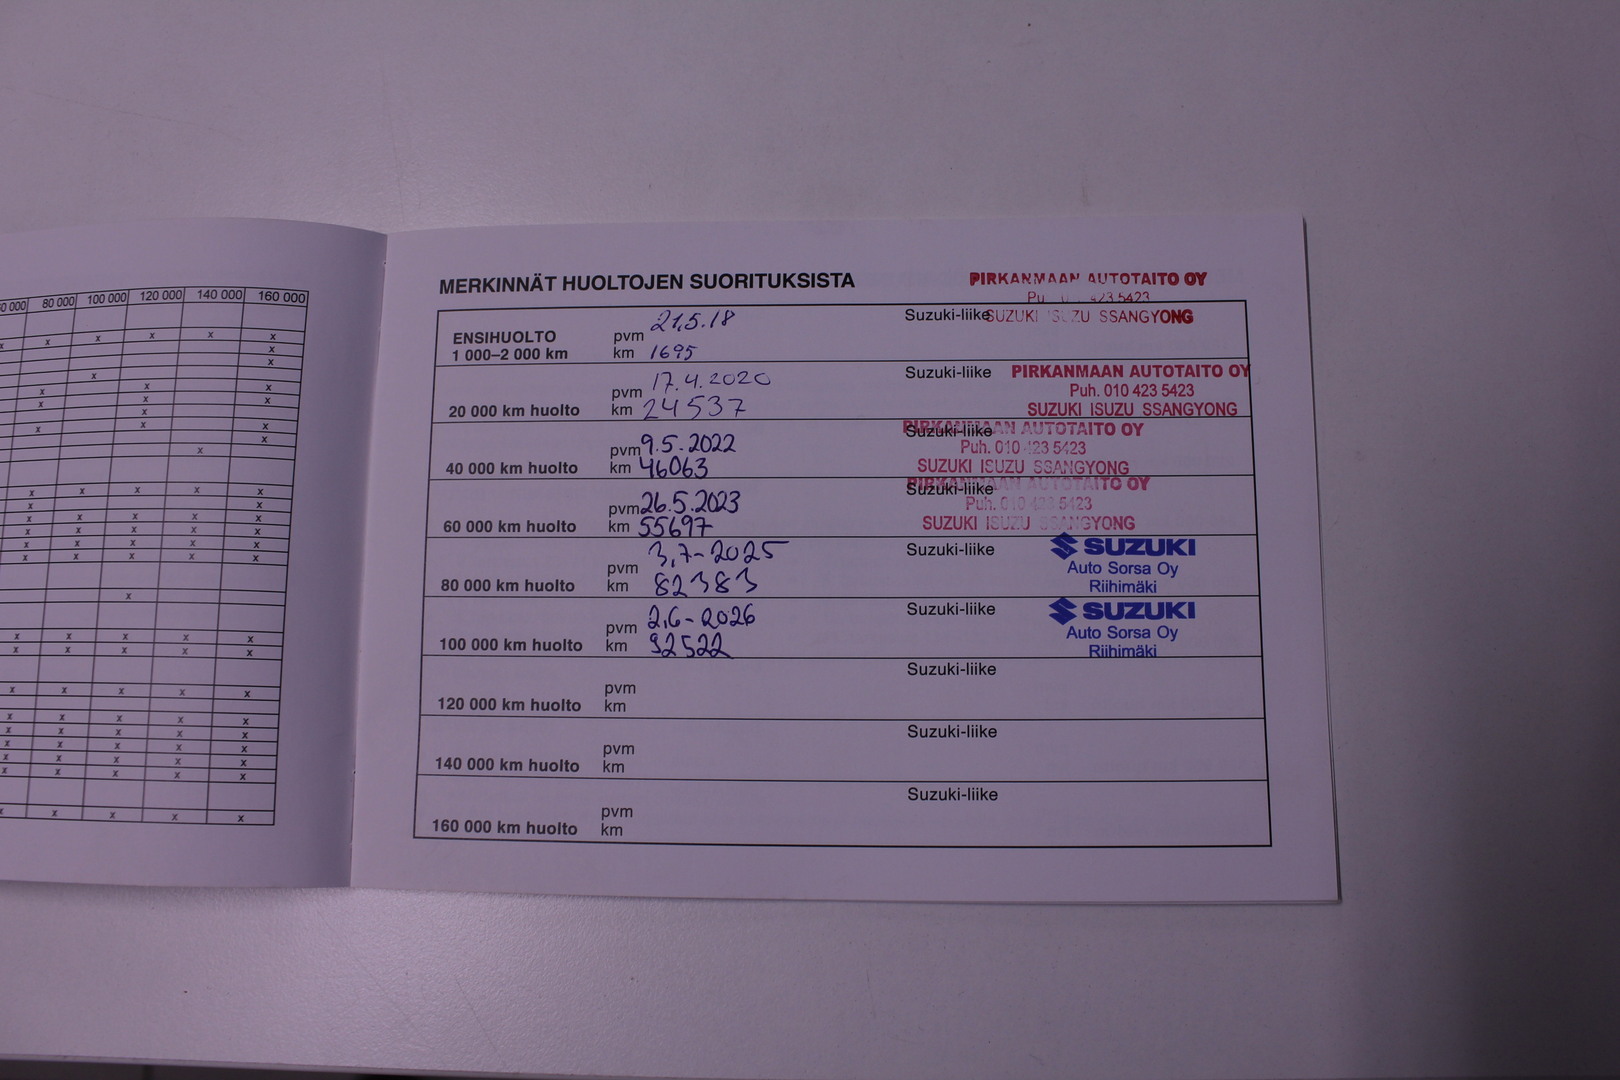 80 000 100 000 120 000 140 000 160 000
MERKINNÄT HUOLTOJEN SUORITUKSISTA
PIRKANMAAN AUTOTAITO OY
423 5423
ENSIHUOLTO
1 000–2 000 km
pvm 21.5.18
km 1695
Suzuki-liike
SUZUKI ISUZU SSANGYONG
20 000 km huolto
pvm 17.4.2020
km 24537
Suzuki-liike
PIRKANMAAN AUTOTAITO OY
Puh. 010 423 5423
SUZUKI ISUZU SSANGYONG
40 000 km huolto
pvm 9.5.2022
km 46063
Suzuki-liike
PIRKANMAAN AUTOTAITO OY
Puh. 010 423 5423
SUZUKI ISUZU SSANGYONG
60 000 km huolto
pvm 26.5.2023
km 55697
Suzuki-liike
PIRKANMAAN AUTOTAITO OY
Puh. 010 423 5423
SUZUKI ISUZU SSANGYONG
80 000 km huolto
pvm 3,7-2025
km 82383
Suzuki-liike
SUZUKI
Auto Sorsa Oy
Riihimäki
100 000 km huolto
pvm 2,6-2026
km 92522
Suzuki-liike
SUZUKI
Auto Sorsa Oy
Riihimäki
120 000 km huolto
pvm
km
Suzuki-liike
140 000 km huolto
pvm
km
Suzuki-liike
160 000 km huolto
pvm
km
Suzuki-liike